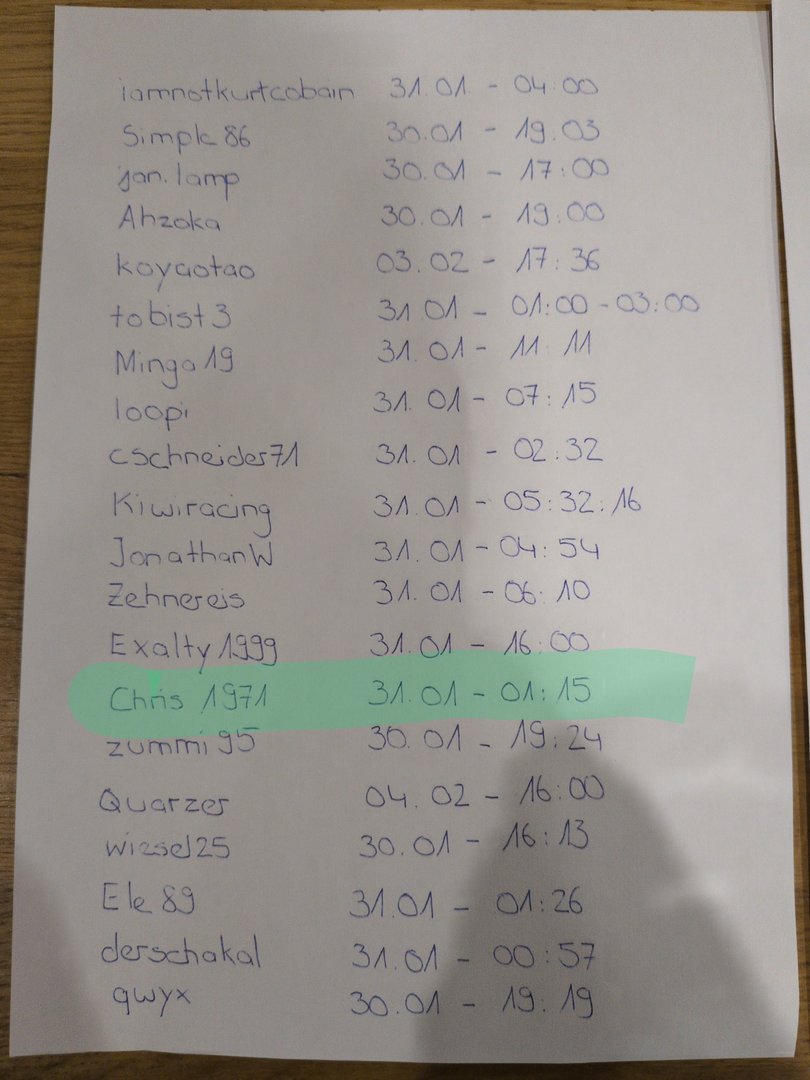 iamnotkurtcobain 31.01 - 04:00
Simple 86 30.01 - 19.03
jan.lamp 30.01 - 17:00
Ahzoka 30.01 - 19:00
koyaotao 03.02 - 17:36
tobist3 31.01 - 01:00-03:00
Minga 19 31.01 - 11:11
loopi 31.01 - 07:15
cschneider71 31.01 - 02:32
Kiwiracing 31.01 - 05:32:16
JonathanW 31.01 - 04:54
Zehnereis 31.01 - 06:10
Exalty 1999 31.01 - 16:00
Chris 1971 31.01 - 01:15
zummi 95 30.01 - 19:24
Quarzer 04.02 - 16:00
wiesel25 30.01 - 16:13
Ele 89 31.01 - 01:26
derschakal 31.01 - 00:57
qwyx 30.01 - 19:19